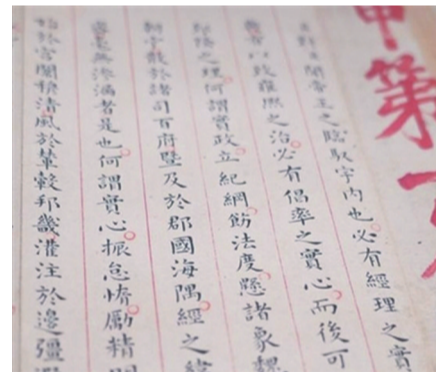 甲第一
臣對臣聞帝王之臨馭宇內也必有經理之實
有以致雍熙之治必有倡率之實心而後可
郅隆之理何謂實政立紀綱飭法度懸諸象魏
朝宁散於諸司百府暨及於郡國海隅經之緯
密毫無滲漏者是也何謂實心振怠惰勵精明
始於宮闈穆清風於輦轂邦畿灌注於邊疆遐